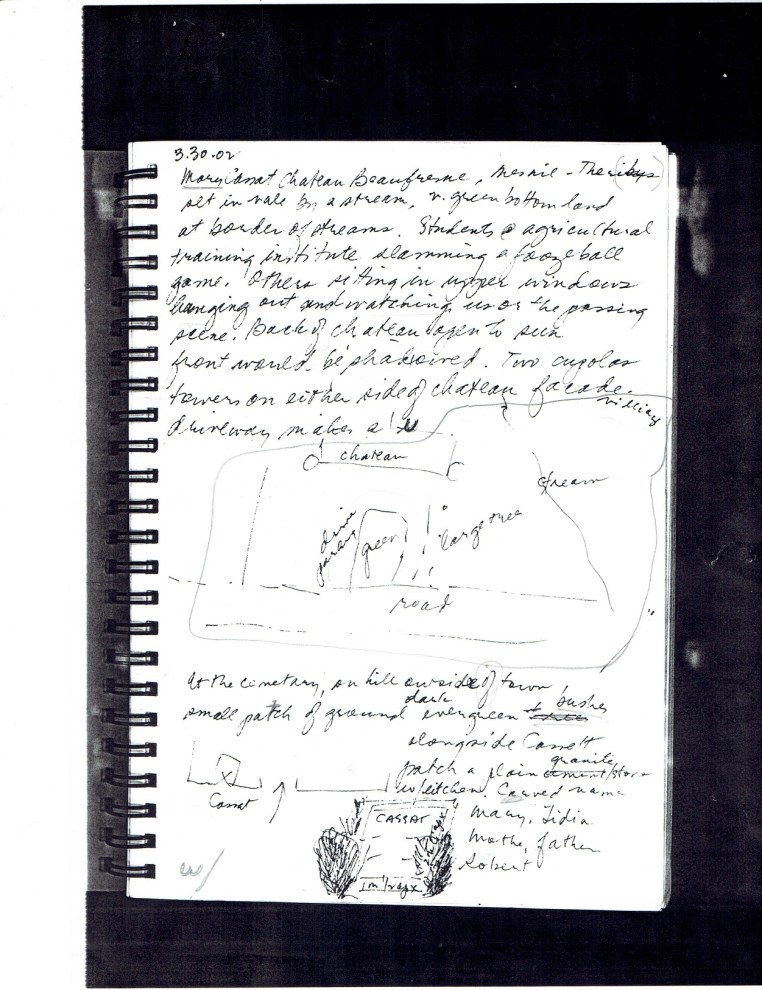 3.30.02
Mary Cassat Chateau Beaufresne, Mesnil-Theribus)
set in vale by a stream, v. green bottom land
at border of streams. Students @ agricultural
training institute slamming a foozeball
game. Others sitting in upper windows
hanging out and watching us or the passing
scene. Back of chateau open to sun
front would be shadowed. Two cupolas
towers on either side of chateau facade.
Driveway makes a
chateau
stream
drive
green
large tree
road
At the cemetary, on hill outside of town,
small patch of ground dark evergreen + bushes
alongside Cassett
patch a plain granite
Carved name
Cassat
CASSAT
Mary, Lidia
Mothe, father
Robert